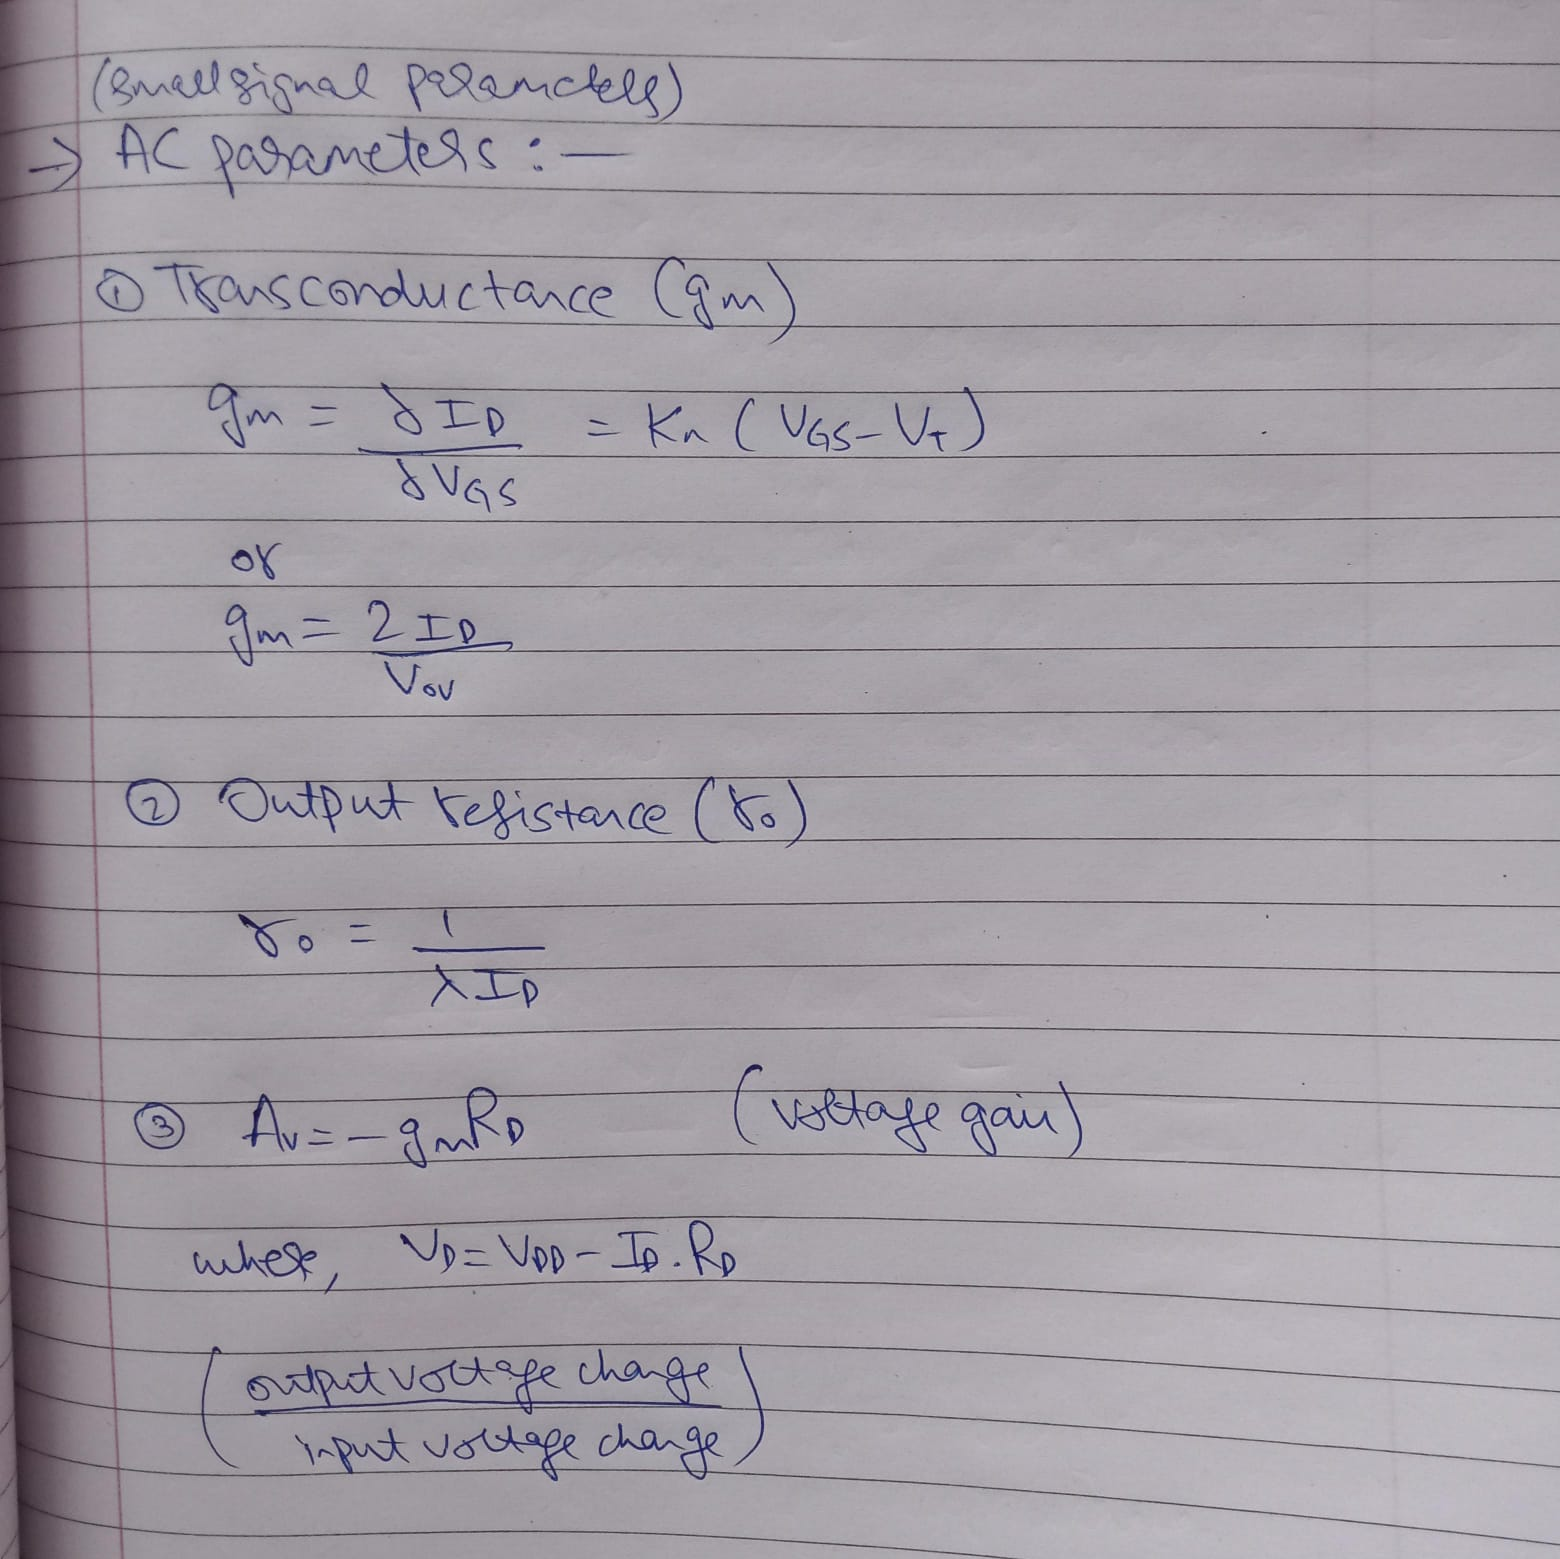 (small signal parameters)
→ AC parameters :—
① Transconductance (gm)
gm = ∂ID / ∂VGS = Kn (VGS - Vt)
or
gm = 2 ID / Vov
② Output resistance (ro)
ro = 1 / λID
③ Av = - gmRD (voltage gain)
where, VD = VDD - ID . RD
(output voltage change
input voltage change)